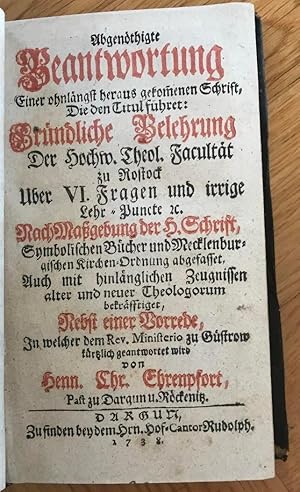 Abgenöthigte
Beantwortung
Einer ohnlängst heraus gekommenen Schrift,
Die den Titul führet:
Gründliche Belehrung
Der Hochw. Theol. Facultät
zu Rostock
Uber VI. Fragen und irrige
Lehr-Puncte ꝛc.
Nach Maßgebung der H. Schrift,
Symbolischen Bücher und Mecklenbur-
gischen Kirchen-Ordnung abgefasset,
Auch mit hinlänglichen Zeugnissen
alter und neuer Theologorum
bekräfftiget,
Nebst einer Vorrede,
In welcher dem Rev. Ministerio zu Güstrow
kürtzlich geantwortet wird
von
Henn. Chr. Ehrenpfort,
Past zu Dargun u. Röckenitz.
DARGUN,
Zu finden bey dem Hrn. Hof-Cantor Rudolph.
1738.